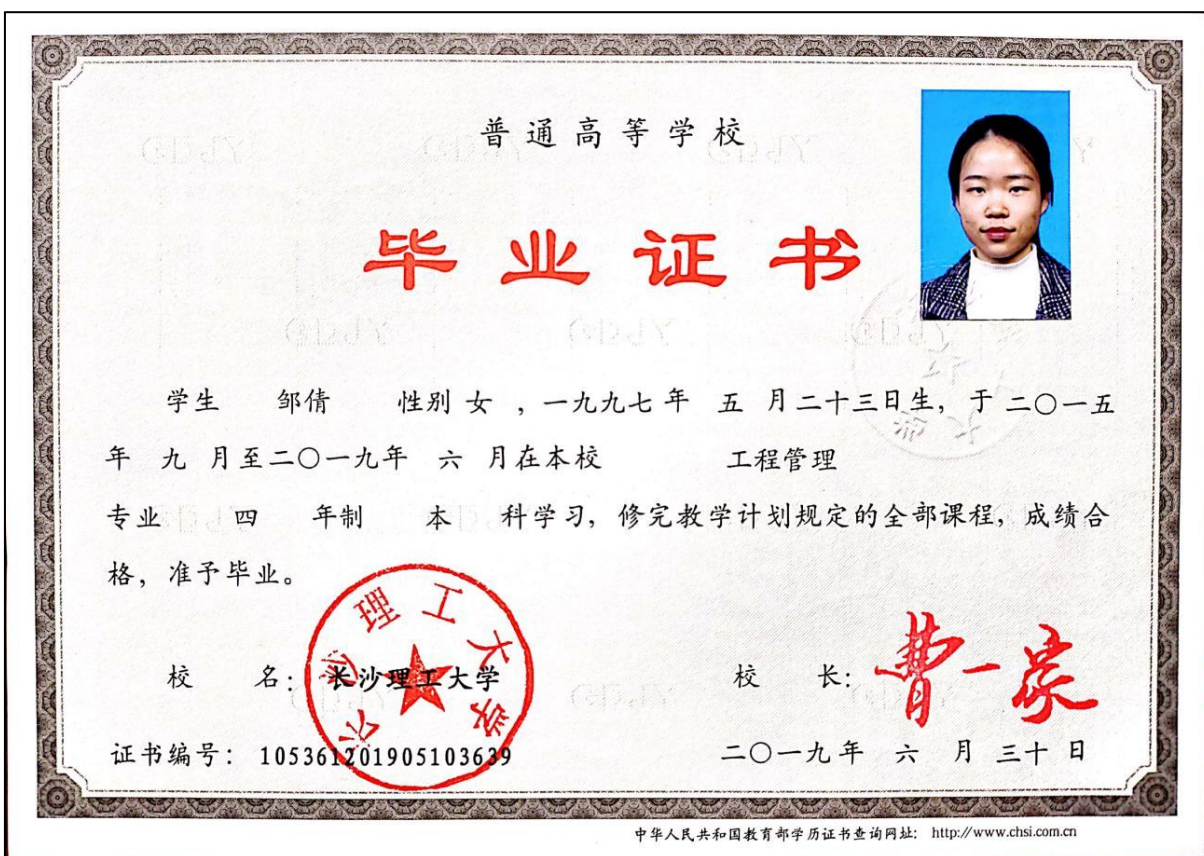 普通高等学校
毕业证书
学生 邹倩 性别 女 ，一九九七 年 五 月 二十三日生，于 二〇一五
年 九 月至二〇一九年 六 月在本校 工程管理
专业 四 年制 本 科学习，修完教学计划规定的全部课程，成绩合
格，准予毕业。
长沙理工大学
校 名：长沙理工大学 校 长：曹一家
证书编号：105361201905103639 二〇一九年 六 月 三十 日
中华人民共和国教育部学历证书查询网址： http://www.chsi.com.cn